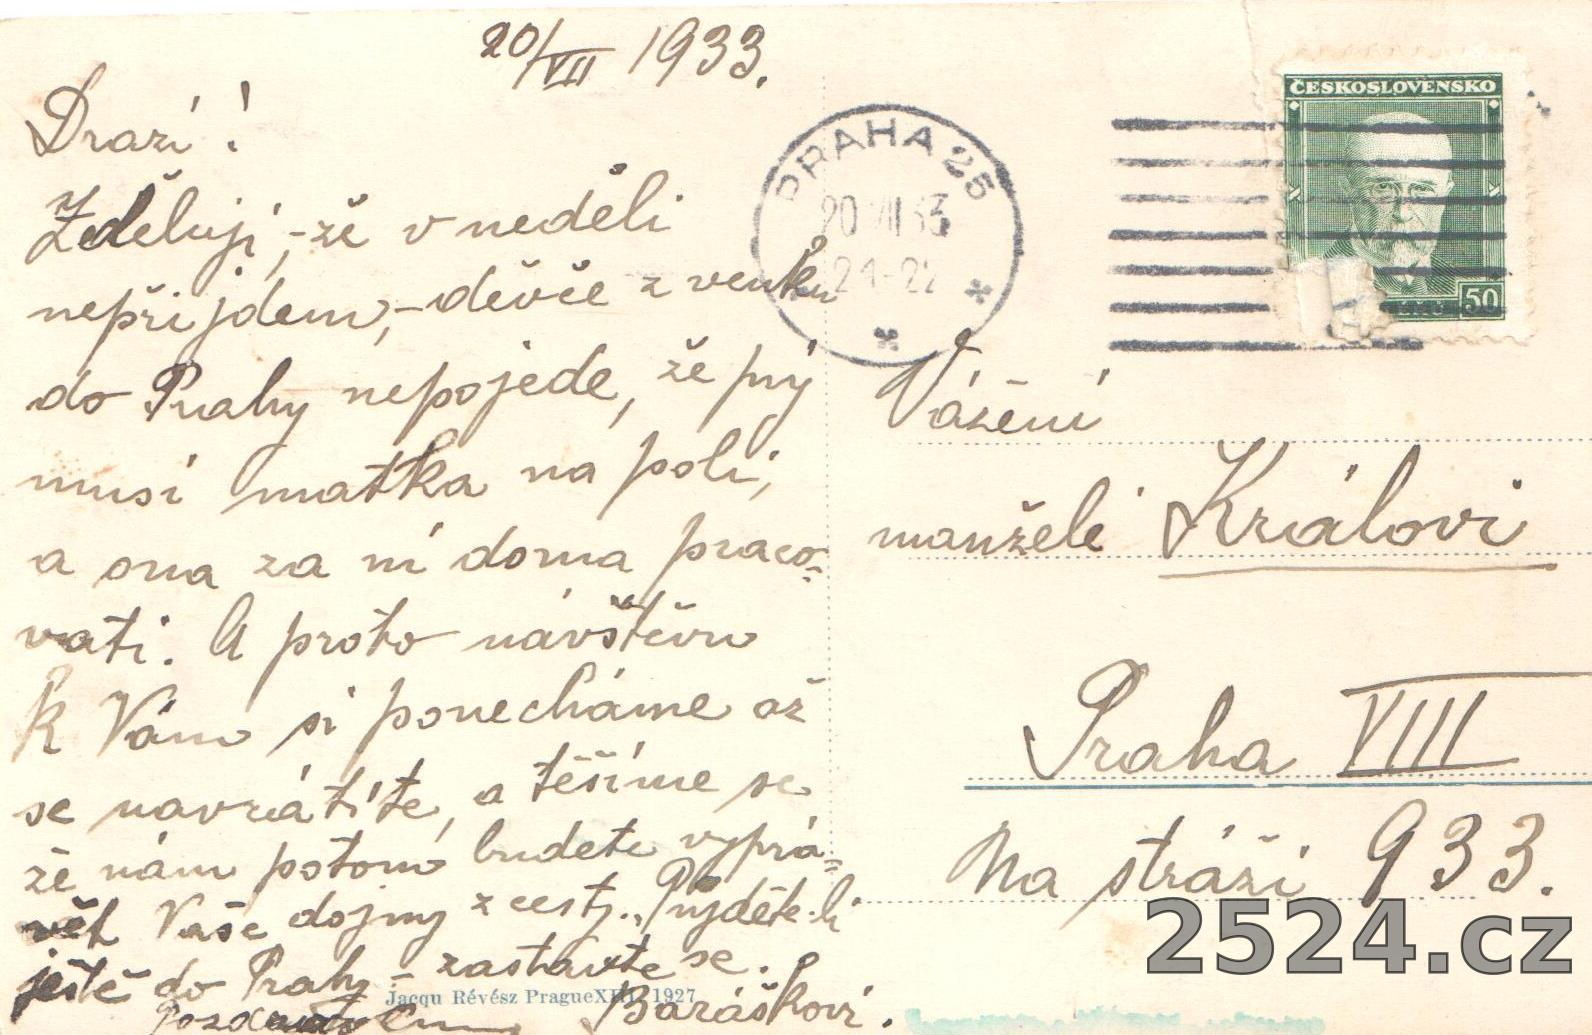 20/VII 1933.
Drazí!
Zděluji,-že v neděli
nepřijdem,-děvče z venku
do Prahy nepojede, že prý
musí matka na poli,
a ona za ní doma praco-
vati. A proto návštěvu
k Vám si ponecháme až
se navrátíte, a těšíme se
že nám potom budete vyprá-
vět Vaše dojmy z cesty. Půjdete-li
ještě do Prahy - zastavte se.
Baráškovi.
Jacqu Révész Prague XIII, 1927
PRAHA 25
20 VII 33
21-22
* *
ČESKOSLOVENSKO
50
Vážení
manželé Královi
Praha VIII
Na stráži 933.
2524.cz